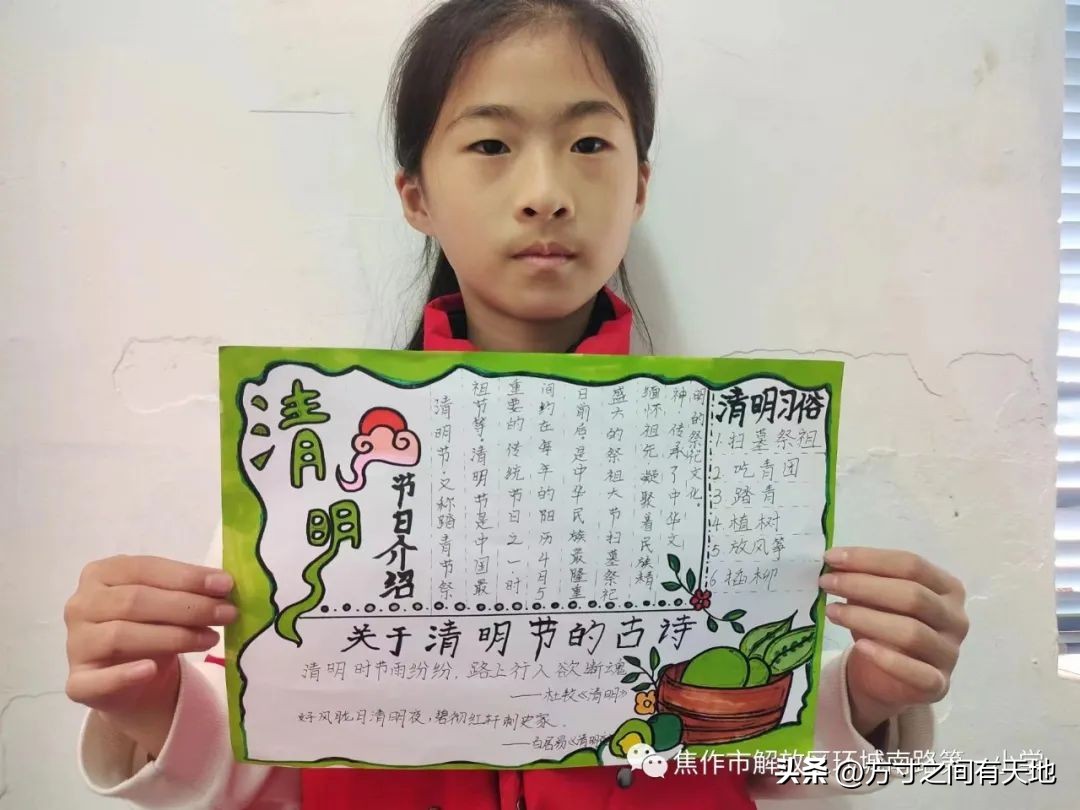 清明
节日介绍
清明节又称踏青节祭
祖节等.清明节是中国最
重要的传统节日之一时
间约在每年的阳历4月5
日前后.是中华民族最隆重
盛大的祭祖大节扫墓祭祀
缅怀祖先凝聚着民族精
神传承了中华文
明的祭祀文化.
清明习俗
1.扫墓祭祖
2.吃青团
3.踏青
4.植树
5.放风筝
6.插柳
关于清明节的古诗
清明时节雨纷纷.路上行人欲断魂
——杜牧《清明》
好风胧月清明夜,碧彻红轩刺史家.
——白居易《清明
焦作市解放区环城南路第一小学
头条 @方寸之间有天地